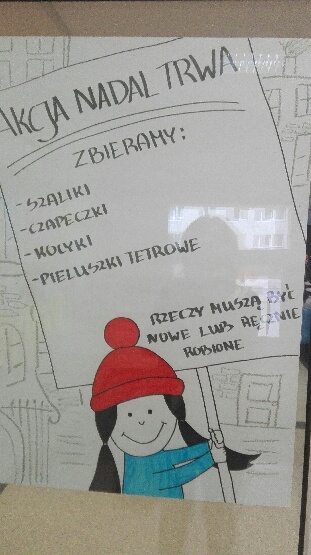 AKCJA NADAL TRWA
ZBIERAMY:
- SZALIKI
- CZAPECZKI
- KOCYKI
- PIELUSZKI TETROWE
RZECZY MUSZĄ BYĆ
NOWE LUB RĘCZNIE
ROBIONE